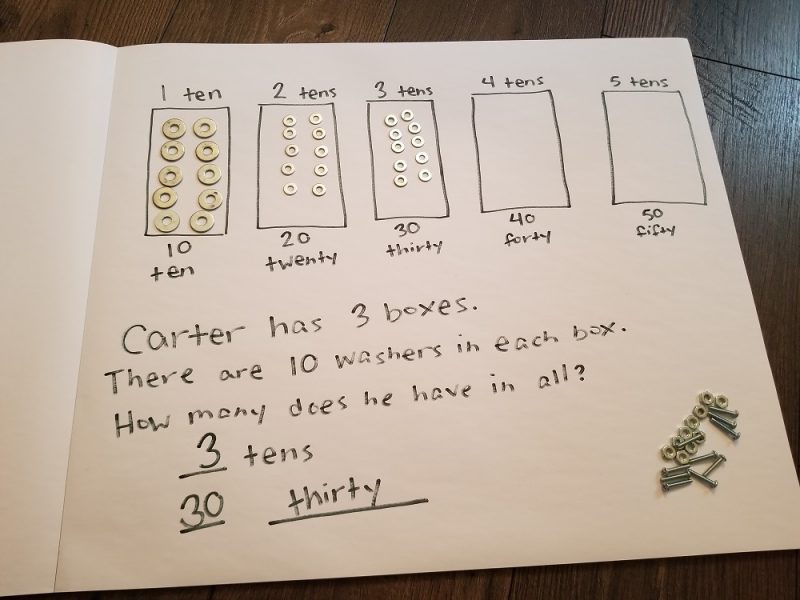 1 ten 2 tens 3 tens 4 tens 5 tens
10 20 30 40 50
ten twenty thirty forty fifty
Carter has 3 boxes.
There are 10 washers in each box.
How many does he have in all?
3 tens
30 thirty